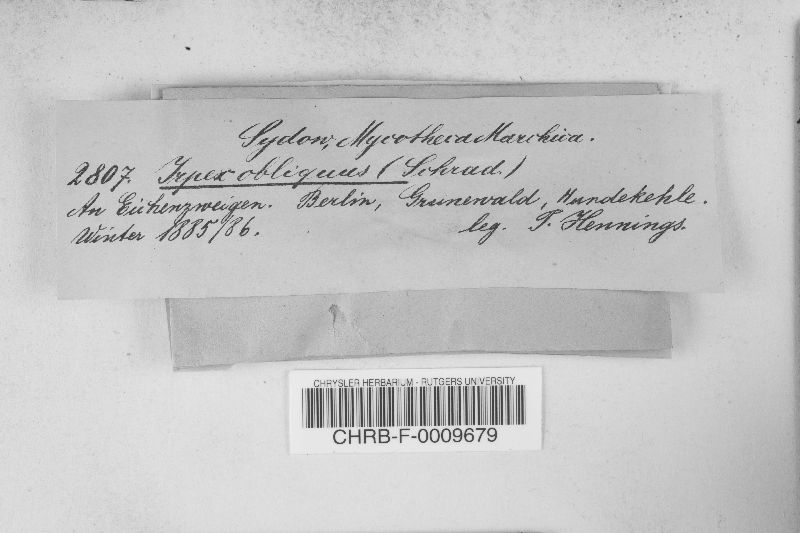 Sydow, Mycotheca Marchica.
2807. Irpex obliquus (Schrad.)
An Eichenzweigen. Berlin, Grunewald, Hundekehle.
Winter 1885/86. leg. P. Hennings.
CHRYSLER HERBARIUM - RUTGERS UNIVERSITY
CHRB-F-0009679